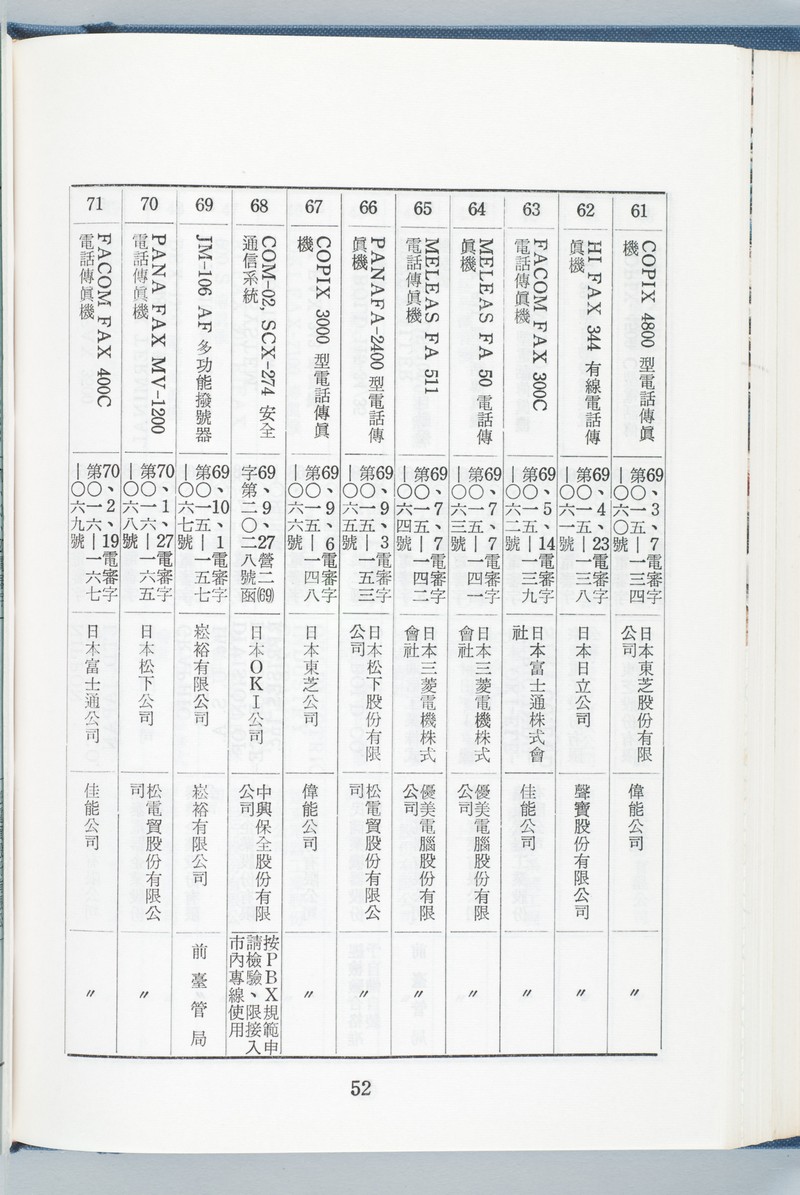 61
COPIX 4800 型電話傳眞
機
69、3、7電審字
第〇一五—一三四
—〇六〇號
日本東芝股份有限
公司
偉能公司
〃
62
HI FAX 344 有線電話傳
眞機
69、4、23電審字
第〇一五—一三八
—〇六一號
日本日立公司
聲寶股份有限公司
〃
63
FACOM FAX 300C
電話傳眞機
69、5、14電審字
第〇一五—一三九
—〇六二號
日本富士通株式會
社
佳能公司
〃
64
MELEAS FA 50 電話傳
眞機
69、7、7電審字
第〇一五—一四一
—〇六三號
日本三菱電機株式
會社
優美電腦股份有限
公司
〃
65
MELEAS FA 511
電話傳眞機
69、7、7電審字
第〇一五—一四二
—〇六四號
日本三菱電機株式
會社
優美電腦股份有限
公司
〃
66
PANAFA-2400 型電話傳
眞機
69、9、3電審字
第〇一五—一五三
—〇六五號
日本松下股份有限
公司
松電貿股份有限公
司
〃
67
COPIX 3000 型電話傳眞
機
69、9、6電審字
第〇一五—一四八
—〇六六號
日本東芝公司
偉能公司
〃
68
COM-02, SCX-274 安全
通信系統
69、9、27營二(69)
字第二〇二八號函
日本OKI公司
中興保全股份有限
公司
按PBX規範申
請檢驗、限接入
市內專線使用
69
JM-106 AF 多功能撥號器
69、10、1電審字
第〇一五—一五七
—〇六七號
崧裕有限公司
崧裕有限公司
前臺管局
70
PANA FAX MV-1200
電話傳眞機
70、1、27電審字
第〇一六—一六五
—〇六八號
日本松下公司
松電貿股份有限公
司
〃
71
FACOM FAX 400C
電話傳眞機
70、2、19電審字
第〇一六—一六七
—〇六九號
日本富士通公司
佳能公司
〃
52